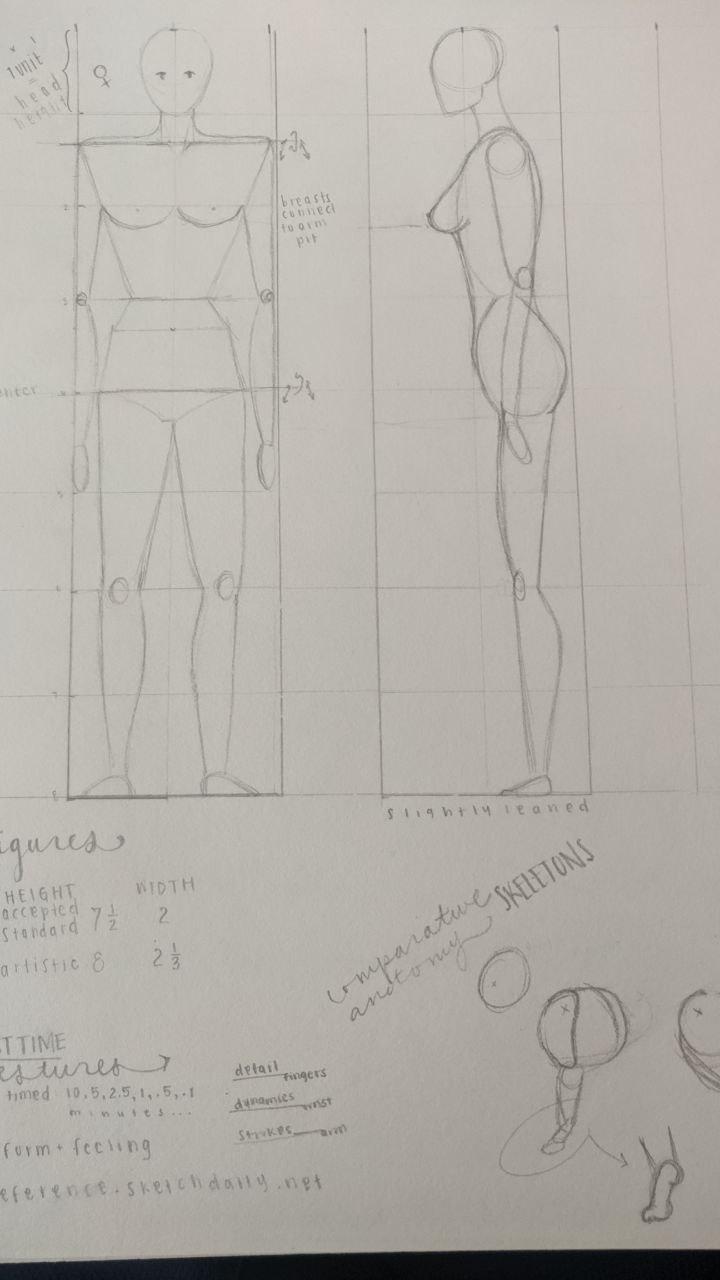 1 unit
=
head
height
♀
breasts
connect
to arm
pit
2
3
enter
5
6
7
8
slightly leaned
igures
HEIGHT WIDTH
accepted
standard 7 1/2 2
artistic 8 2 1/3
comparative SKELETONS
anatomy
TTIME
estures
timed 10, 5, 2.5, 1, .5, .1
minutes...
detail fingers
dynamics wrist
strokes arm
form + feeling
eference.sketchdaily.net